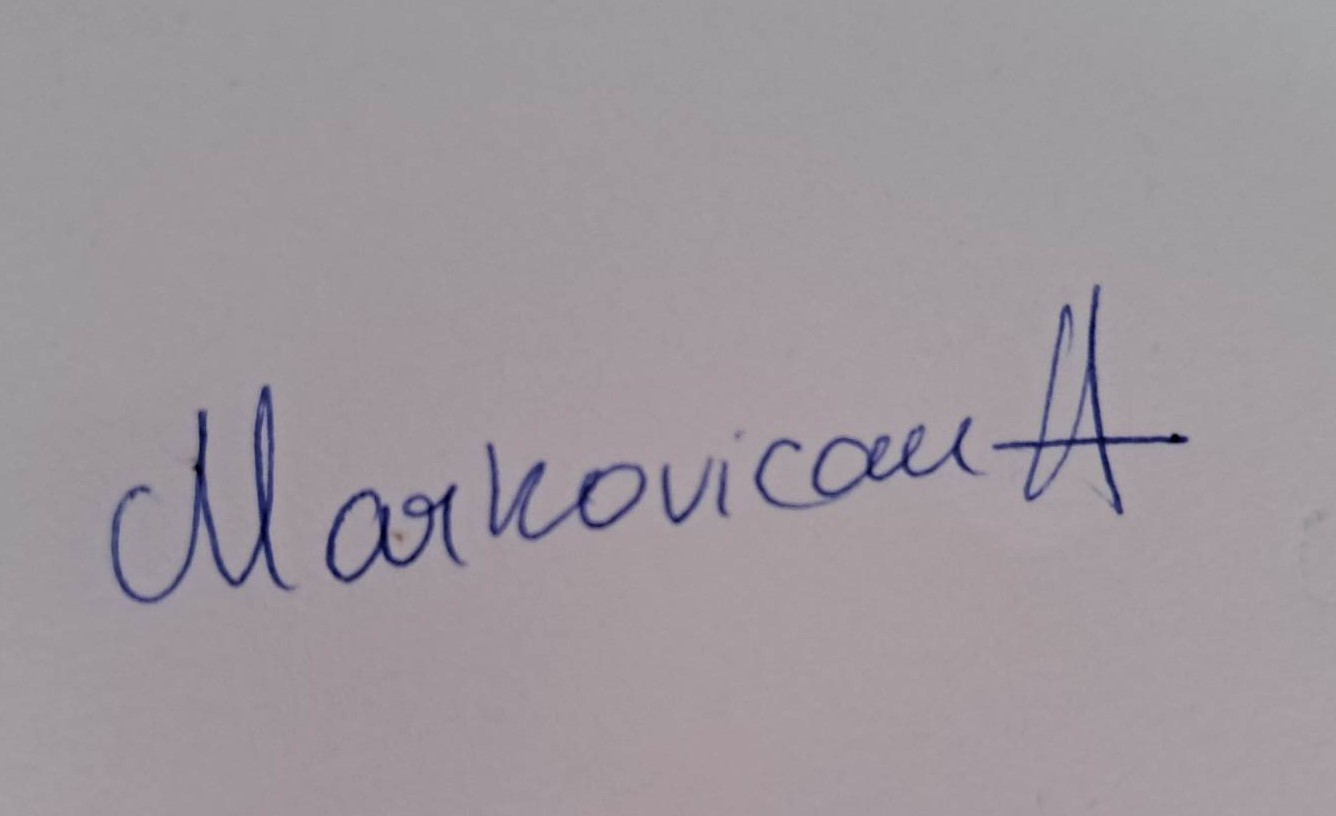 Markovican A